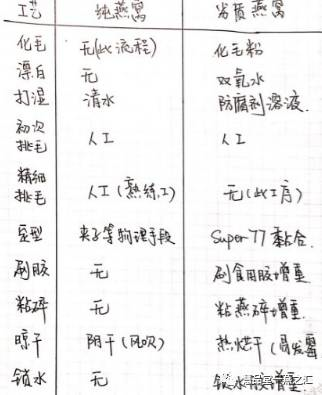 工艺 纯燕窝 劣质燕窝
化毛 无(此流程) 化毛粉
漂白 无 双氧水
打湿 清水 防腐剂溶液
初次挑毛 人工 人工
精细挑毛 人工(熟练工) 无(此工序)
定型 夹子等物理手段 Super 77 黏合
刷胶 无 刷食用胶增重
粘碎 无 粘燕碎增重
晾干 阴干(风吹) 热烘干(易发霉
锁水 无 锁水胶增重